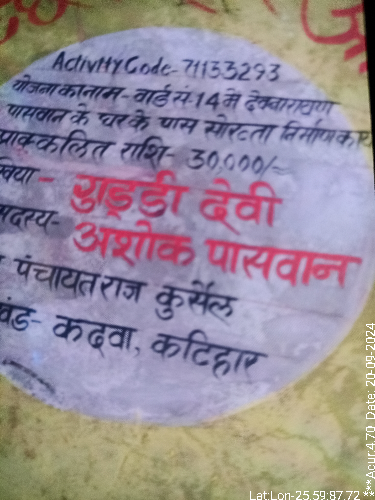 Activity Code-71133293
योजना का नाम- वार्ड सं. 14 में देवनारायण
पासवान के घर के पास सोख्ता निर्माण कार्य
प्राक्कलित राशि- 30,000/-
खिया- गुड्डी देवी
सदस्य- अशोक पासवान
पंचायत राज कुर्सेल
खंड- कदवा, कटिहार
Lat:Lon-25.59:87.72 ***Acur:4.70 Date: 20-09-2024